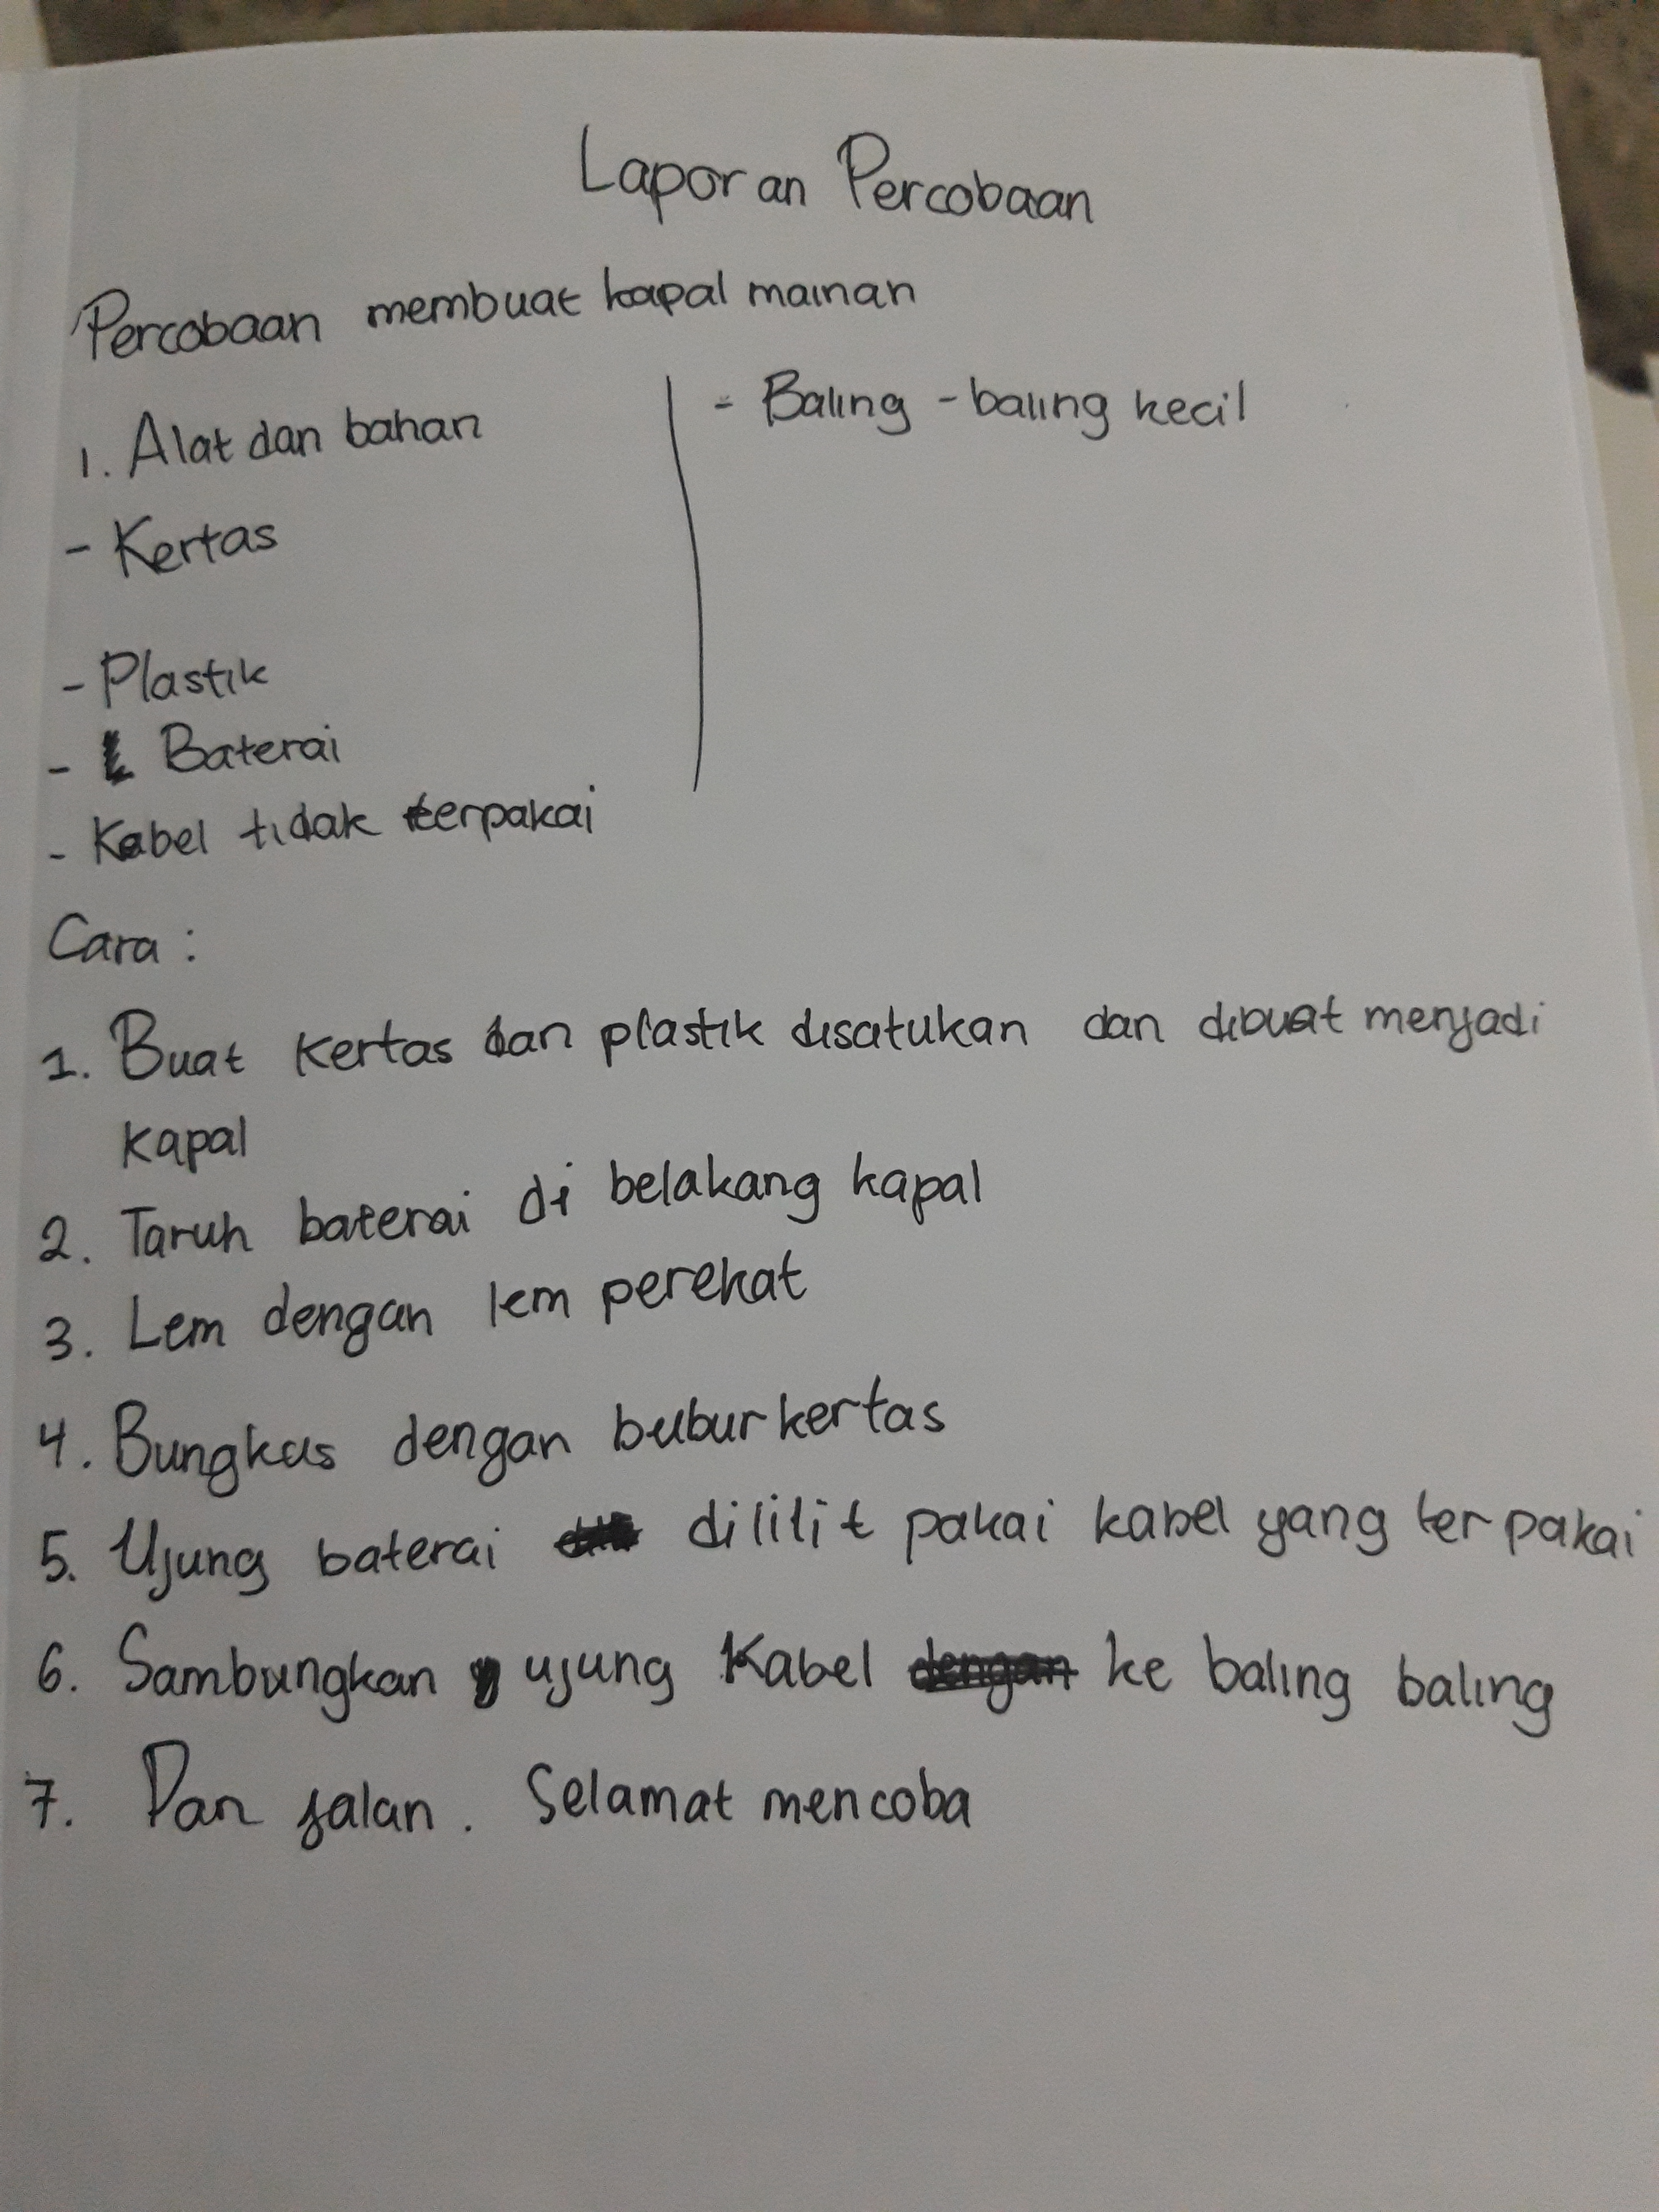 Laporan Percobaan
Percobaan membuat kapal mainan
1. Alat dan bahan
- Kertas
- Plastik
- Baterai
- Kabel tidak terpakai
- Baling - baling kecil
Cara :
1. Buat kertas dan plastik disatukan dan dibuat menjadi
kapal
2. Taruh baterai di belakang kapal
3. Lem dengan lem perekat
4. Bungkus dengan bubur kertas
5. Ujung baterai dililit pakai kabel yang terpakai
6. Sambungkan ujung Kabel dengan ke baling baling
7. Dan jalan. Selamat mencoba